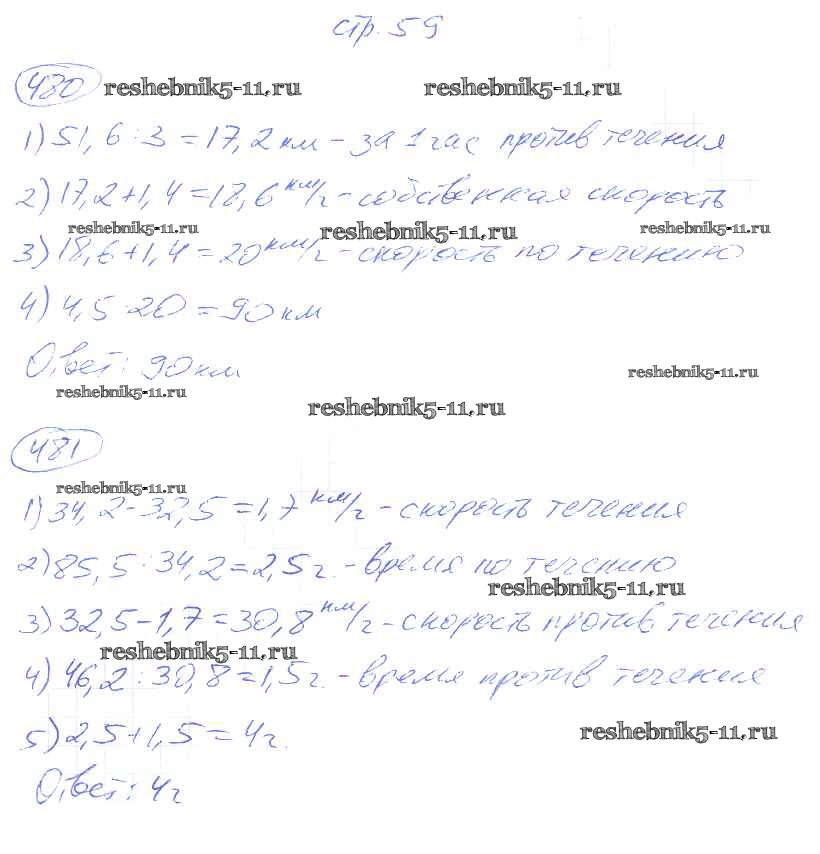 стр. 59
480
reshebnik5-11.ru reshebnik5-11.ru
1) 51,6 : 3 = 17,2 км – за 1 час против течения
2) 17,2 + 1,4 = 18,6 км/г – собственная скорость
reshebnik5-11.ru reshebnik5-11.ru reshebnik5-11.ru
3) 18,6 + 1,4 = 20 км/г – скорость по течению
4) 4,5 · 20 = 90 км
Ответ: 90 км
reshebnik5-11.ru
reshebnik5-11.ru
reshebnik5-11.ru
481
reshebnik5-11.ru
1) 34,2 – 32,5 = 1,7 км/г – скорость течения
2) 85,5 : 34,2 = 2,5 г. – время по течению
reshebnik5-11.ru
3) 32,5 – 1,7 = 30,8 км/г – скорость против течения
reshebnik5-11.ru
4) 46,2 : 30,8 = 1,5 г. – время против течения
5) 2,5 + 1,5 = 4 г.
reshebnik5-11.ru
Ответ: 4 г